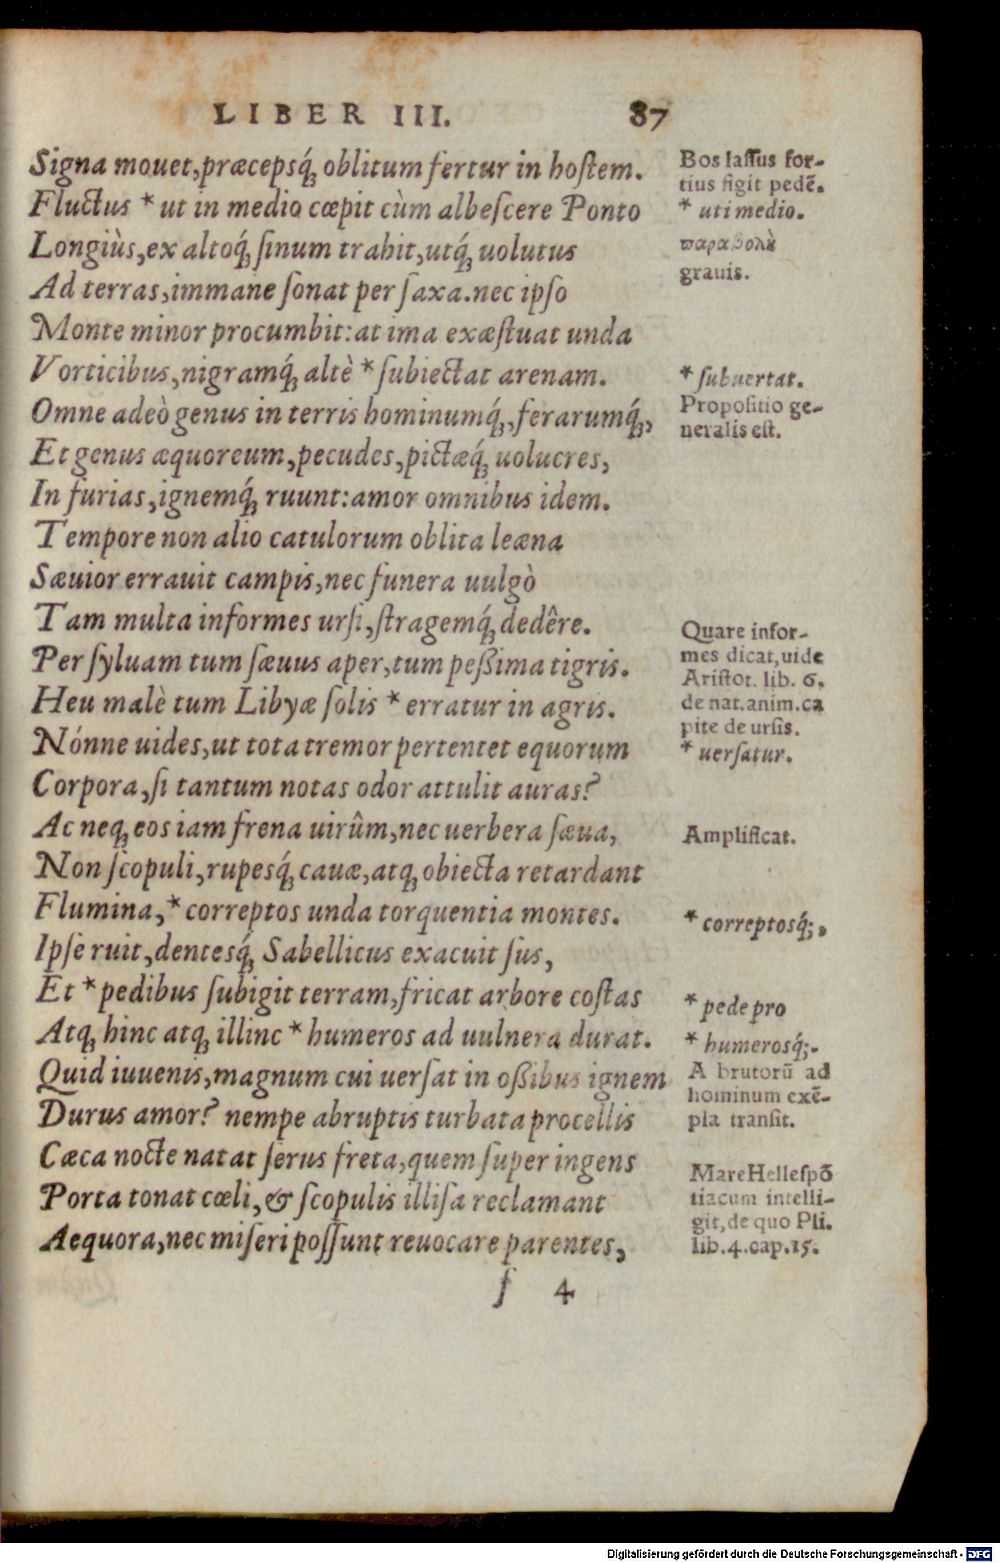 LIBER III. 87
Signa mouet,præcepsq́; oblitum fertur in hoſtem.
Fluctus * ut in medio cœpit cùm albeſcere Ponto
Longiùs,ex altoq́; ſinum trahit,utq́; uolutus
Ad terras,immane ſonat per ſaxa.nec ipſo
Monte minor procumbit:at ima exæſtuat unda
Vorticibus,nigramq́; altè * ſubiectat arenam.
Omne adeò genus in terris hominumq́;,ferarumq́;,
Et genus æquoreum,pecudes,pictæq́; uolucres,
In furias,ignemq́; ruunt:amor omnibus idem.
Tempore non alio catulorum oblita leæna
Sæuior errauit campis,nec funera uulgò
Tam multa informes urſi,ſtragemq́; dedêre.
Per ſyluam tum ſæuus aper,tum peßima tigris.
Heu malè tum Libyæ ſolis * erratur in agris.
Nónne uides,ut tota tremor pertentet equorum
Corpora,ſi tantum notas odor attulit auras?
Ac neq; eos iam frena uirûm,nec uerbera ſæua,
Non ſcopuli,rupesq́; cauæ,atq; obiecta retardant
Flumina,* correptos unda torquentia montes.
Ipſe ruit,dentesq́; Sabellicus exacuit ſus,
Et * pedibus ſubigit terram,fricat arbore coſtas
Atq; hinc atq; illinc * humeros ad uulnera durat.
Quid iuuenis,magnum cui uerſat in oßibus ignem
Durus amor? nempe abruptis turbata procellis
Cæca nocte natat ſerus freta,quem ſuper ingens
Porta tonat cœli,& ſcopulis illiſa reclamant
Aequora,nec miſeri poſſunt reuocare parentes,
ſ 4
Bos laſſus for-
tius figit pedē.
* uti medio.
παραβολὴ
grauis.
* ſubuertat.
Propoſitio ge-
neralis eſt.
Quare infor-
mes dicat,uide
Ariſtot. lib. 6.
de nat.anim.ca
pite de urſis.
* uerſatur.
Amplificat.
* correptosq́;,
* pede pro
* humerosq́;.
A brutorū ad
hominum exē-
pla tranſit.
Mare Helleſpō
tiacum intelli-
git,de quo Pli.
lib.4.cap.15.
Digitalisierung gefördert durch die Deutsche Forschungsgemeinschaft - DFG